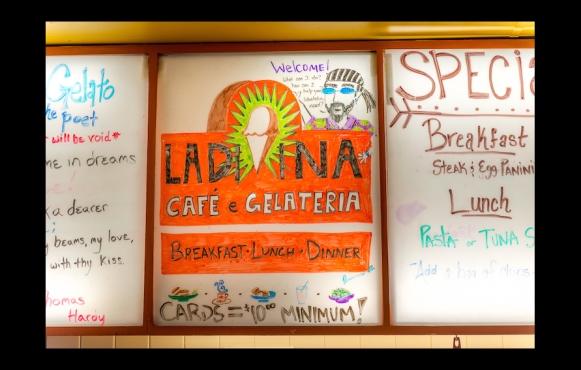 Gelato
the poet
will be void*
me in dreams
a dearer
beams, my love,
with thy kiss.
Thomas
Hardy
Welcome!
What can I do?
how can I
help you
LADIVINA
CAFÉ e GELATERIA
BREAKFAST · LUNCH · DINNER
CARDS = $10.00 MINIMUM!
SPECIA
Breakfast
STEAK & Egg PANINI
Lunch
PASTA or TUNA S
Add a bag of chips